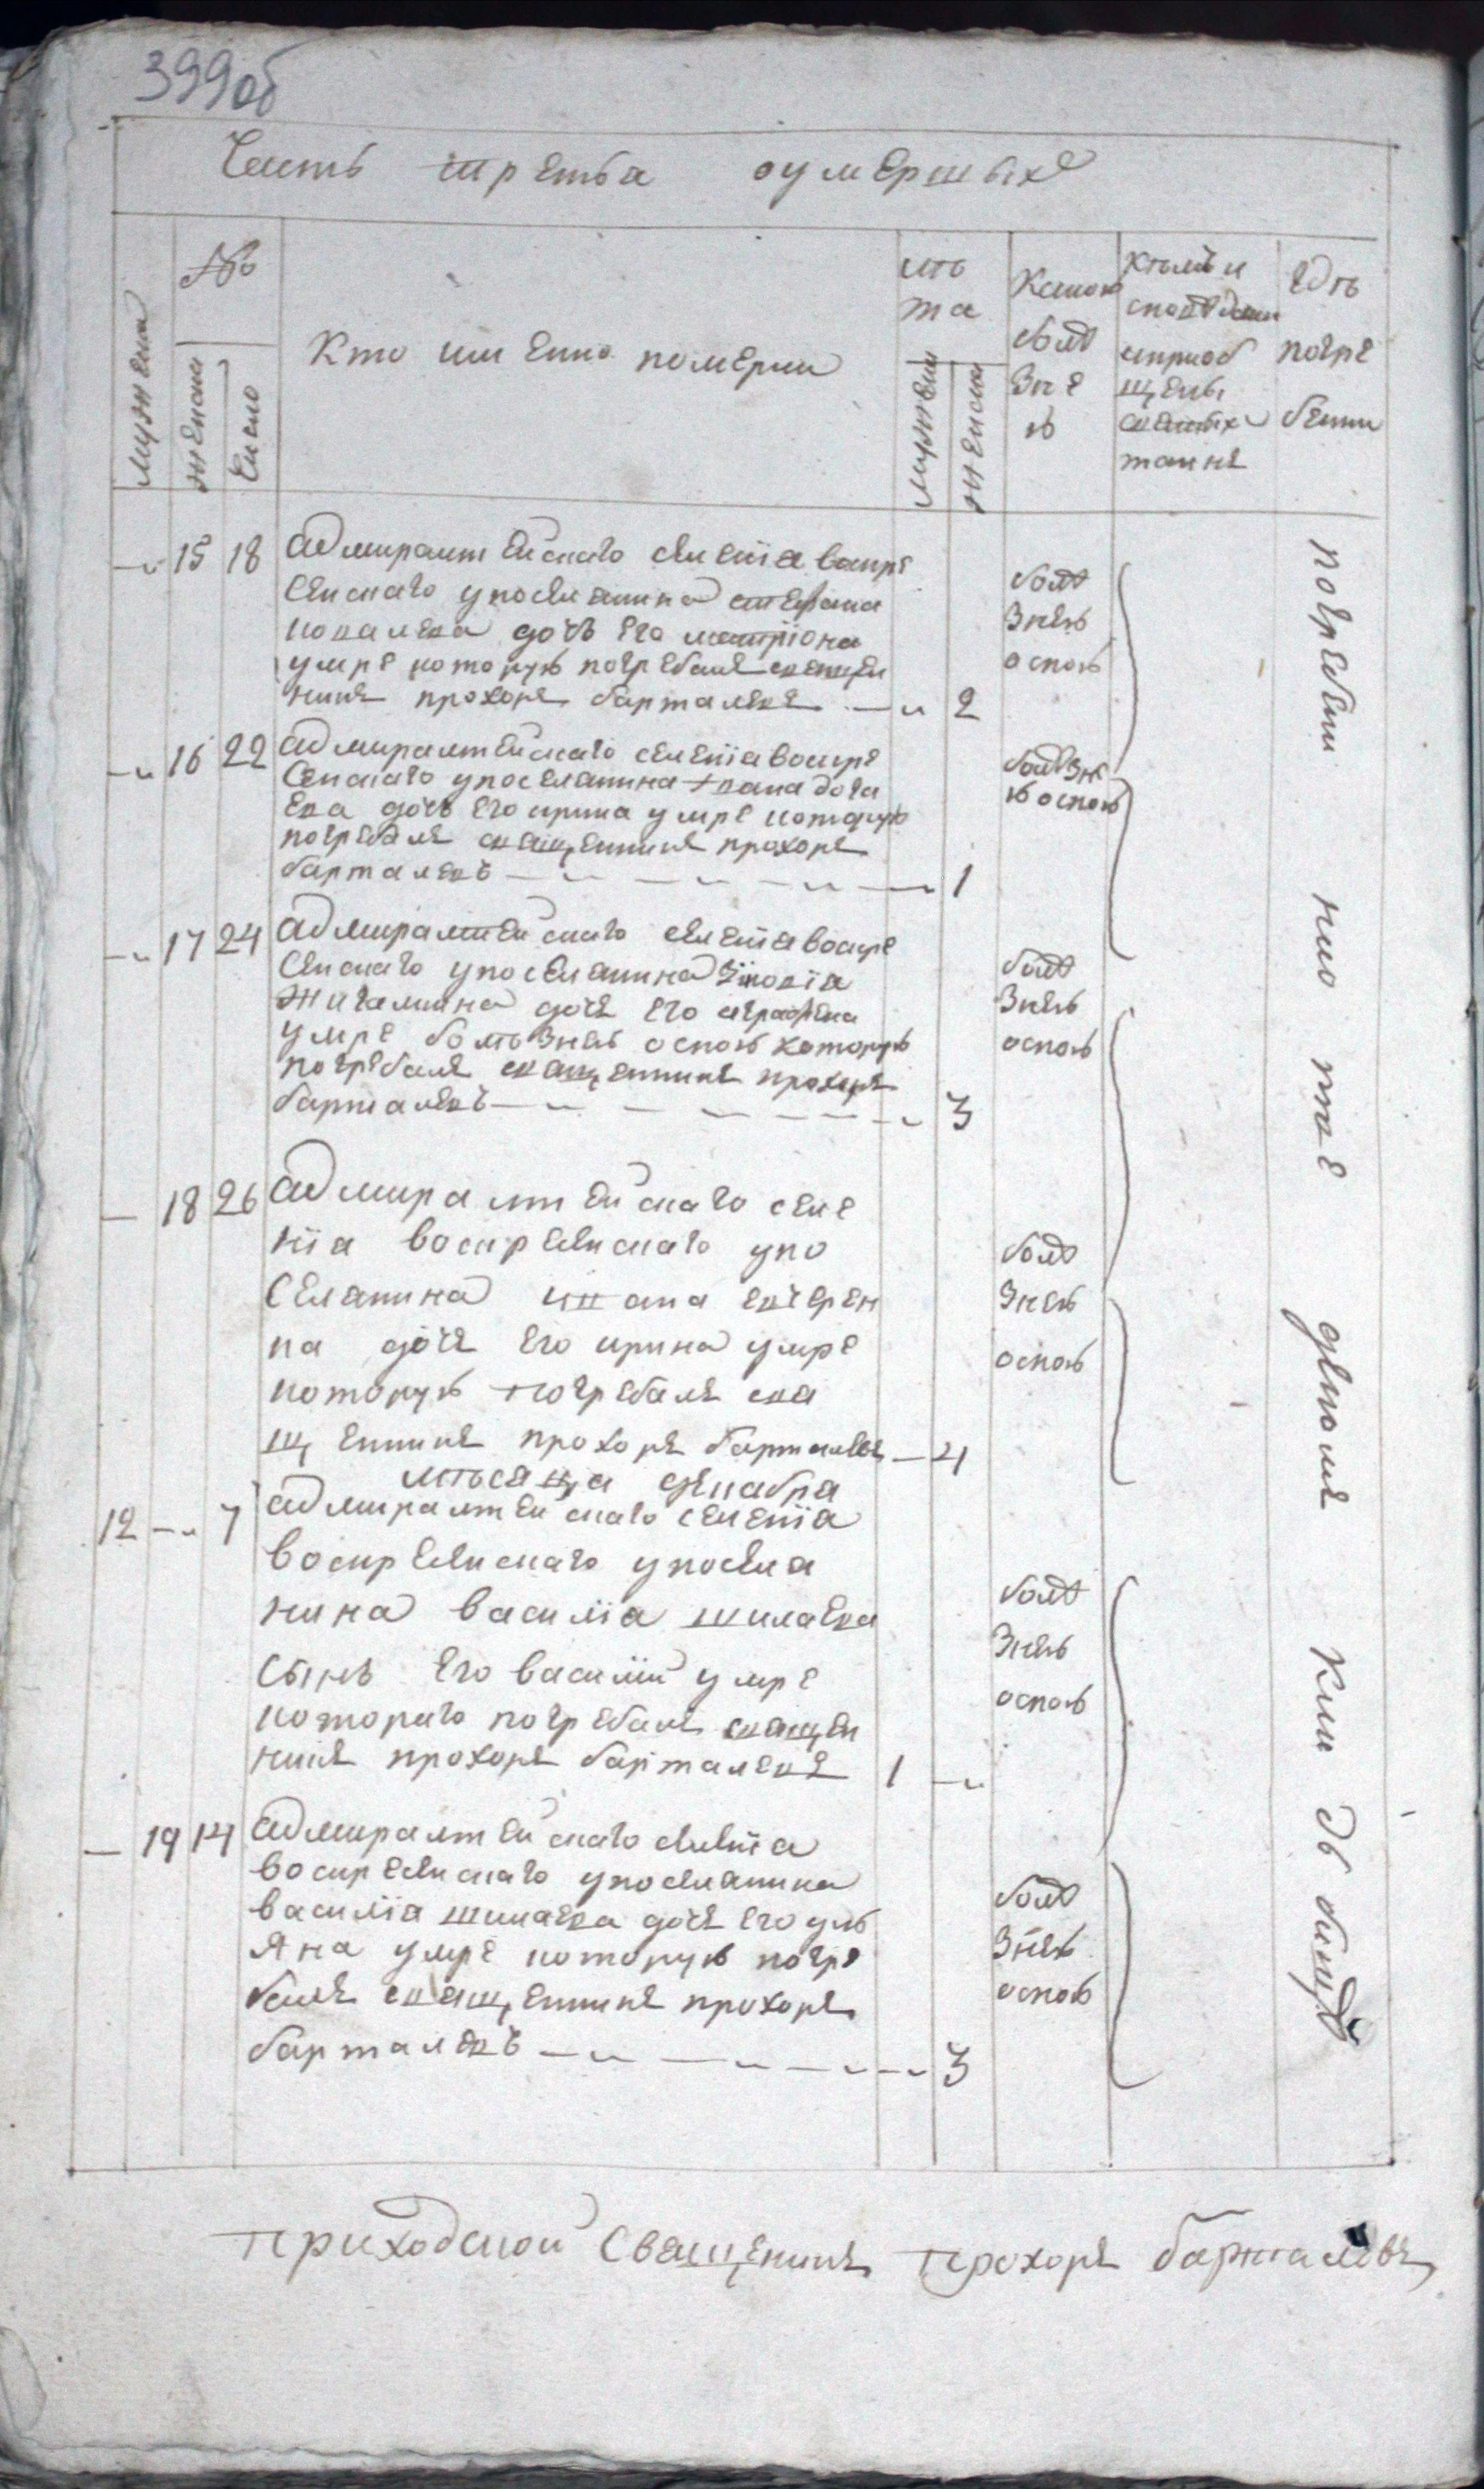 399об
Часть третья оумершыхъ
№
мужеска
женска
Число
Кто имѣнно померли
лѣта
мужеска
женска
Какою
болѣ
зне
ю
Кѣмъ и
споведан
и приоб
щены
святыхъ
таинъ
Где
погре
бены
– 15 18 адмиралтейскаго селенїя воскре
сенскаго упоселянина стефана
ковалева дочь его матрїона
умре которую погребалъ священ
никъ прохоръ барталевъ — 2
болѣ
знею
оспою
– 16 22 адмиралтейскаго селенїя воскре
сенскаго упоселянина ивана
ева дочь его ирина умре которую
погребалъ священникъ прохоръ
барталевъ — 1
болѣзне
ю оспою
– 17 24 адмиралтейскаго селенїя воскре
сенскаго упоселянина
жигалкина дочь его аграфена
умре болѣзнею оспою которую
погребалъ священникъ прохоръ
барталевъ — 3
болѣ
знею
оспою
– 18 26 адмиралтейскаго селе
нїя воскресенскаго упо
селянина ивана
дочь его ирина умре
которую погребалъ свя
щенникъ прохоръ барталевъ — 4
болѣ
знею
оспою
мѣсяца декабря
12 – 7 адмиралтейскаго селенїя
воскресенскаго упоселя
нина василїя шилаева
сынъ его василїй умре
котораго погребалъ священ
никъ прохоръ барталевъ 1 –
болѣ
знею
оспою
– 19 14 адмиралтейскаго селенїя
воскресенскаго упоселянина
василїя шилаева дочь его ул
яна умре которую погре
балъ священникъ прохоръ
барталевъ — 3
болѣ
знею
оспою
погребены на отведномъ кладбищѣ
приходской Священникъ прохоръ барталевъ